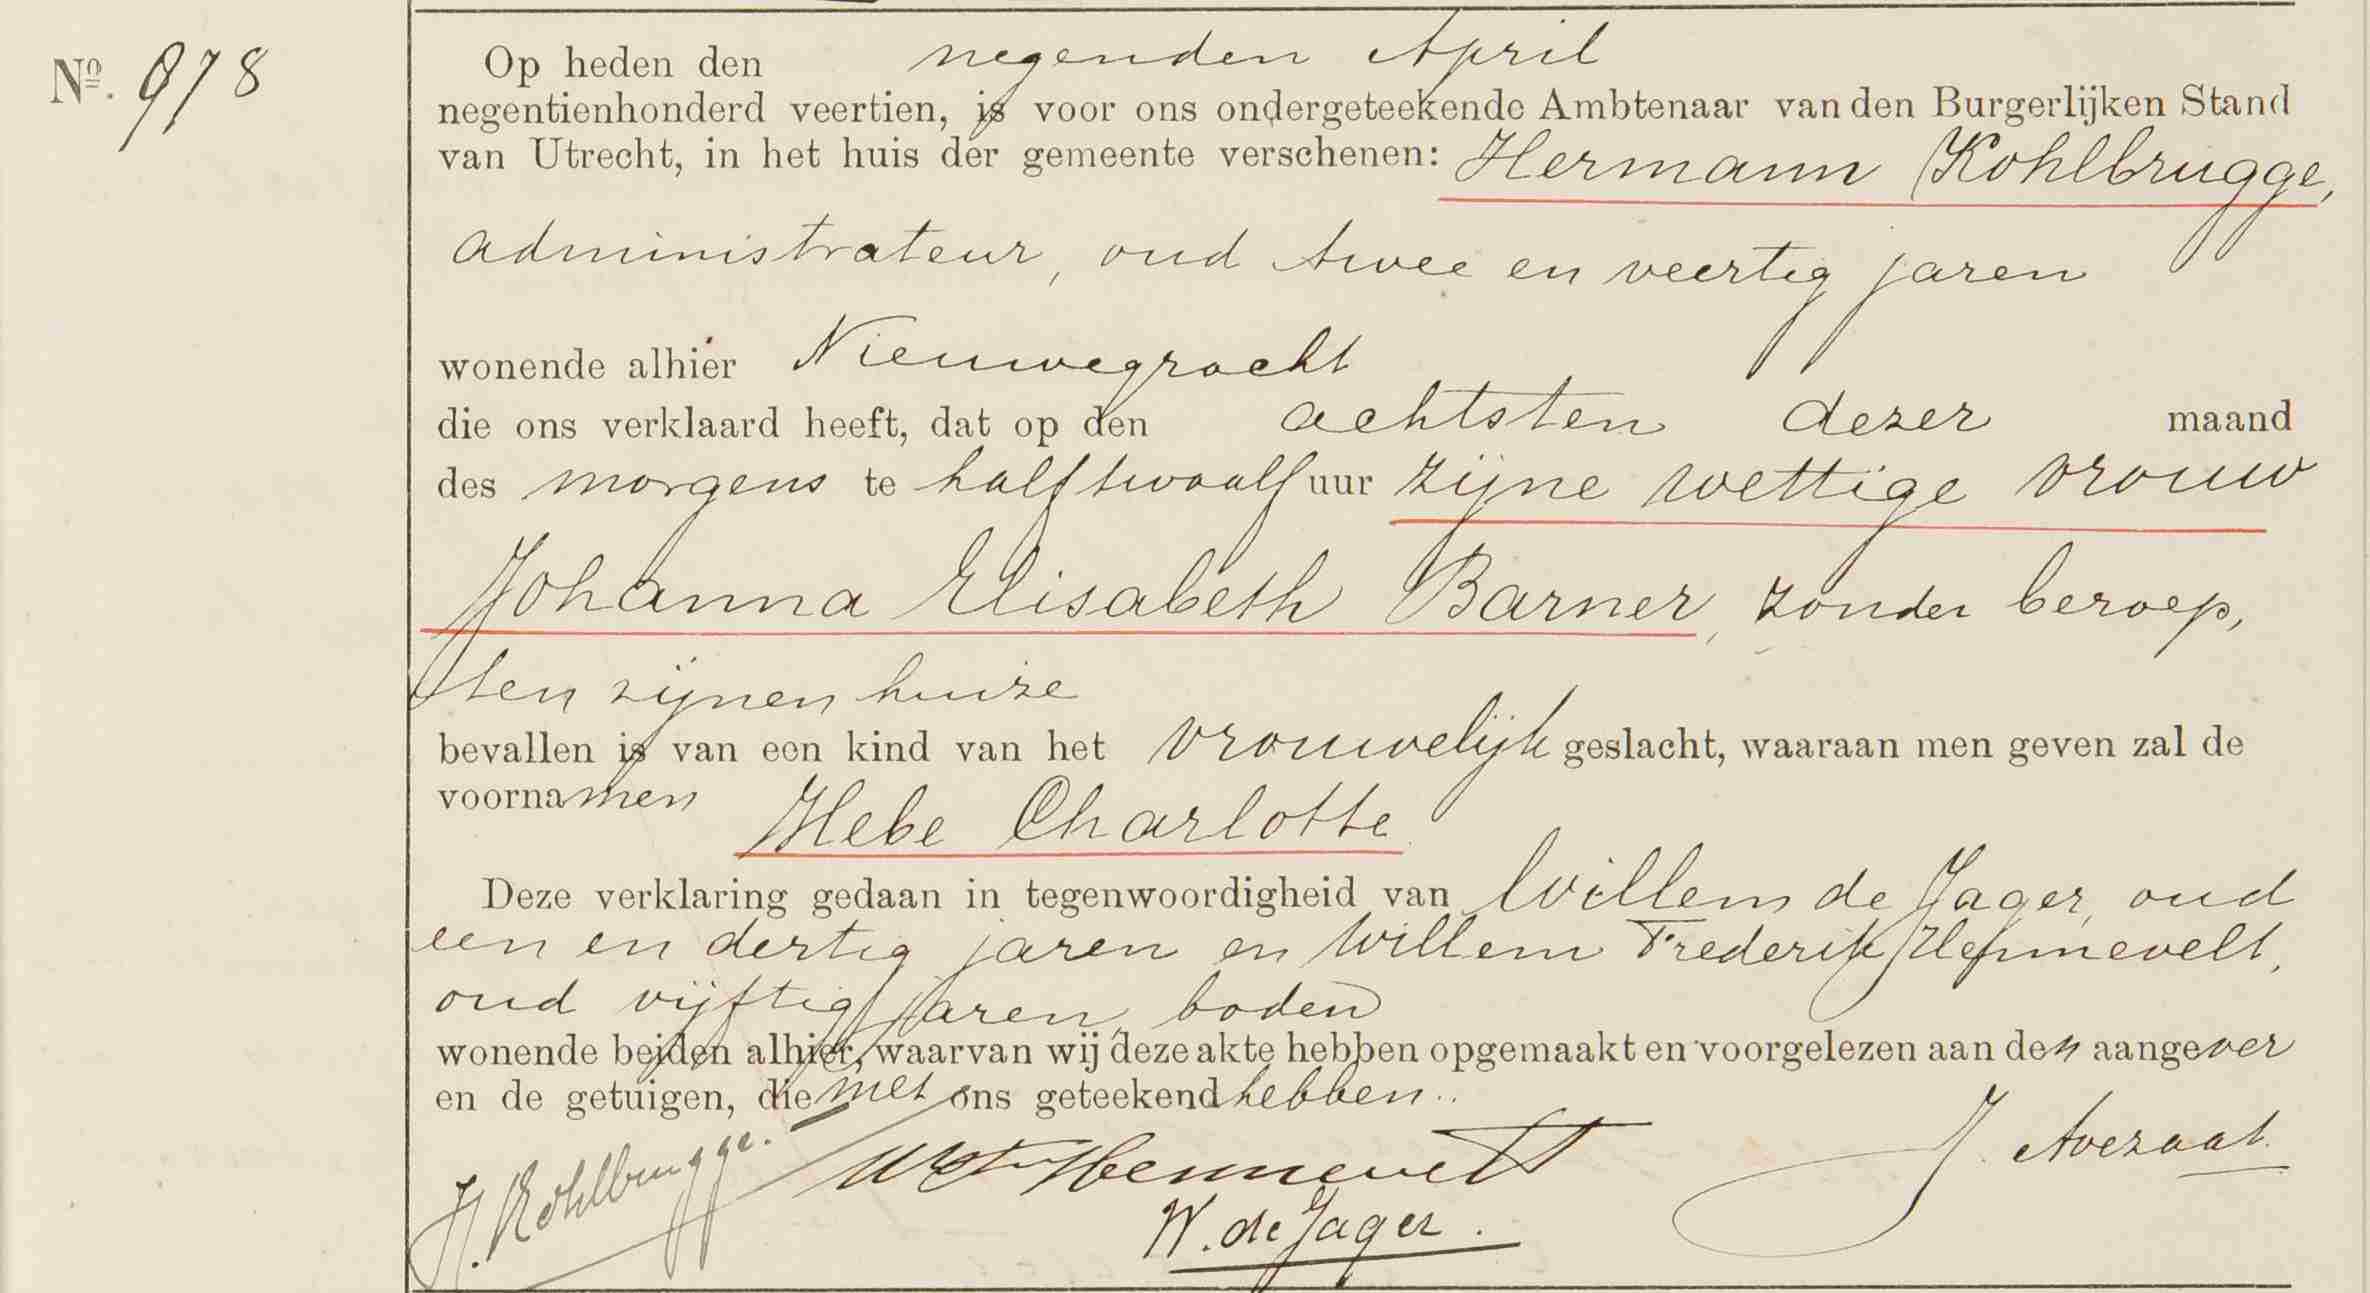 Nº. 978
Op heden den negenden April
negentienhonderd veertien, is voor ons ondergeteekende Ambtenaar van den Burgerlijken Stand
van Utrecht, in het huis der gemeente verschenen: Hermann Kohlbrugge,
administrateur, oud twee en veertig jaren
wonende alhier Nieuwegracht
die ons verklaard heeft, dat op den achtsten dezer maand
des morgens te half twaalf uur zijne wettige vrouw
Johanna Elisabeth Barner, zonder beroep,
ten zijnen huize
bevallen is van een kind van het vrouwelijk geslacht, waaraan men geven zal de
voornamen Hebe Charlotte
Deze verklaring gedaan in tegenwoordigheid van Willem de Jager, oud
een en dertig jaren en Willem Frederik Hennevelt,
oud vijftig jaren, boden
wonende beiden alhier, waarvan wij deze akte hebben opgemaakt en voorgelezen aan den aangever
en de getuigen, die met ons geteekend hebben.
H. Kohlbrugge. WF Hennevelt J. Avezaat.
W. de Jager.